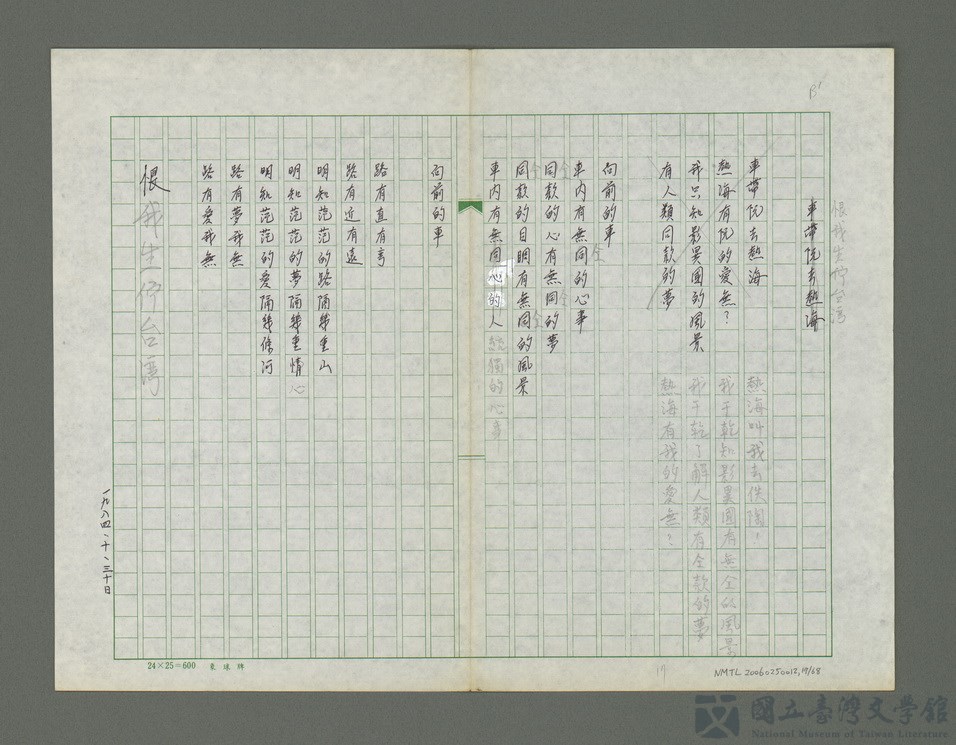 B1
恨我生佇台湾
車帶阮去熱海
車帶阮去熱海
熱海叫我去佚陶,
熱海有阮的愛無?
我干乾知影異国有無仝的風景
我只知影異国的風景
我干乾了解人類有仝款的夢
有人類同款的夢
熱海有我的愛無?
向前的車
仝
車内有無同的心事
仝
同款的心有無同的夢
仝
仝
同款的目睭有無同的風景
仝
車内有無同心的人
統獨的心事
向前的車
路有直有弯
路有近有遠
明知茫茫的路隔幾重山
明知茫茫的夢隔幾重情
心
明知茫茫的愛隔幾條河
路有夢我無
路有愛我無
恨我生佇台湾
一九八四、十、三十日
24×25=600
17
NMTL 20060250012,17/68
國立臺灣文學館
National Museum of Taiwan Literature